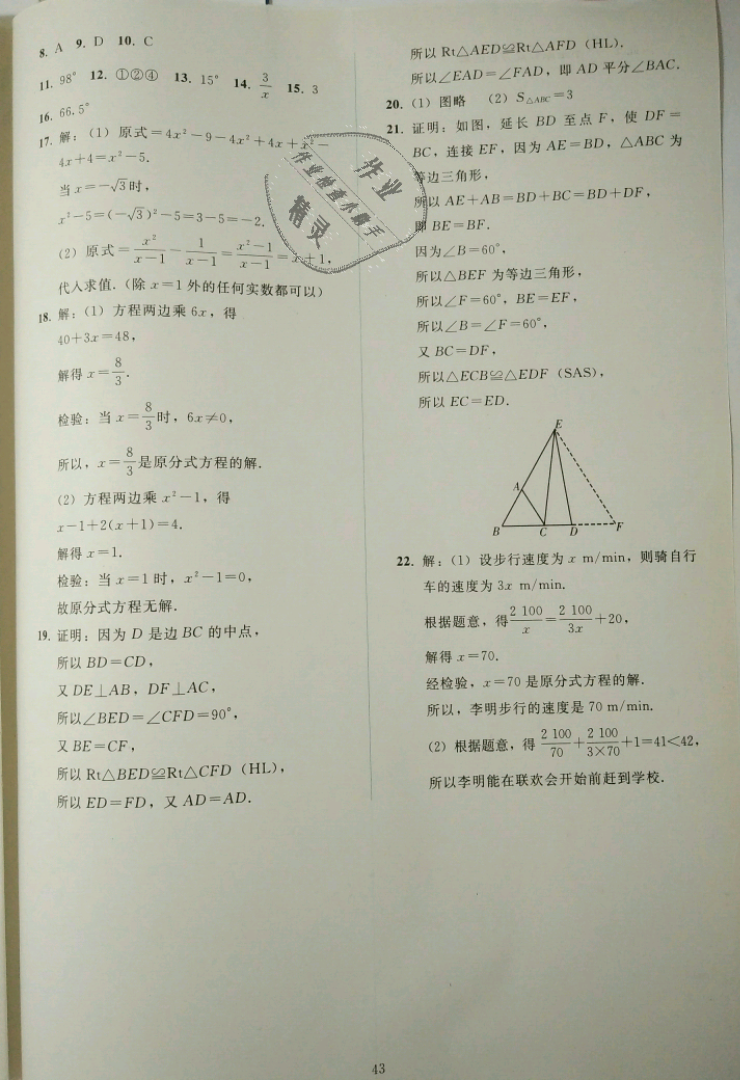 8. A 9. D 10. C
11. 98° 12. ①②④ 13. 15° 14. 3/x 15. 3
16. 66.5°
17. 解：(1) 原式=4x²-9-4x²+4x+x²-
4x+4=x²-5.
当 x=-√3时，
x²-5=(-√3)²-5=3-5=-2.
(2) 原式=x²/(x-1)-1/(x-1)=(x²-1)/(x-1)=x+1，
代入求值.(除 x=1 外的任何实数都可以)
18. 解：(1) 方程两边乘 6x，得
40+3x=48，
解得 x=8/3.
检验：当 x=8/3时，6x≠0，
所以，x=8/3是原分式方程的解.
(2) 方程两边乘 x²-1，得
x-1+2(x+1)=4.
解得 x=1.
检验：当 x=1 时，x²-1=0，
故原分式方程无解.
19. 证明：因为 D 是边 BC 的中点，
所以 BD=CD，
又 DE⊥AB，DF⊥AC，
所以∠BED=∠CFD=90°，
又 BE=CF，
所以 Rt△BED≌Rt△CFD (HL)，
所以 ED=FD，又 AD=AD.
所以 Rt△AED≌Rt△AFD (HL).
所以∠EAD=∠FAD，即 AD 平分∠BAC.
20. (1) 图略 (2) S△ABC=3
21. 证明：如图，延长 BD 至点 F，使 DF=
BC，连接 EF，因为 AE=BD，△ABC 为
等边三角形，
所以 AE+AB=BD+BC=BD+DF，
即 BE=BF.
因为∠B=60°，
所以△BEF 为等边三角形，
所以∠F=60°，BE=EF，
所以∠B=∠F=60°，
又 BC=DF，
所以△ECB≌△EDF (SAS)，
所以 EC=ED.
E
A
B C D F
22. 解：(1) 设步行速度为 x m/min，则骑自行
车的速度为 3x m/min.
根据题意，得2 100/x=2 100/3x+20，
解得 x=70.
经检验，x=70 是原分式方程的解.
所以，李明步行的速度是 70 m/min.
(2) 根据题意，得 2 100/70+2 100/(3×70)+1=41<42，
所以李明能在联欢会开始前赶到学校.
作业
作业检查小助手
精灵
43